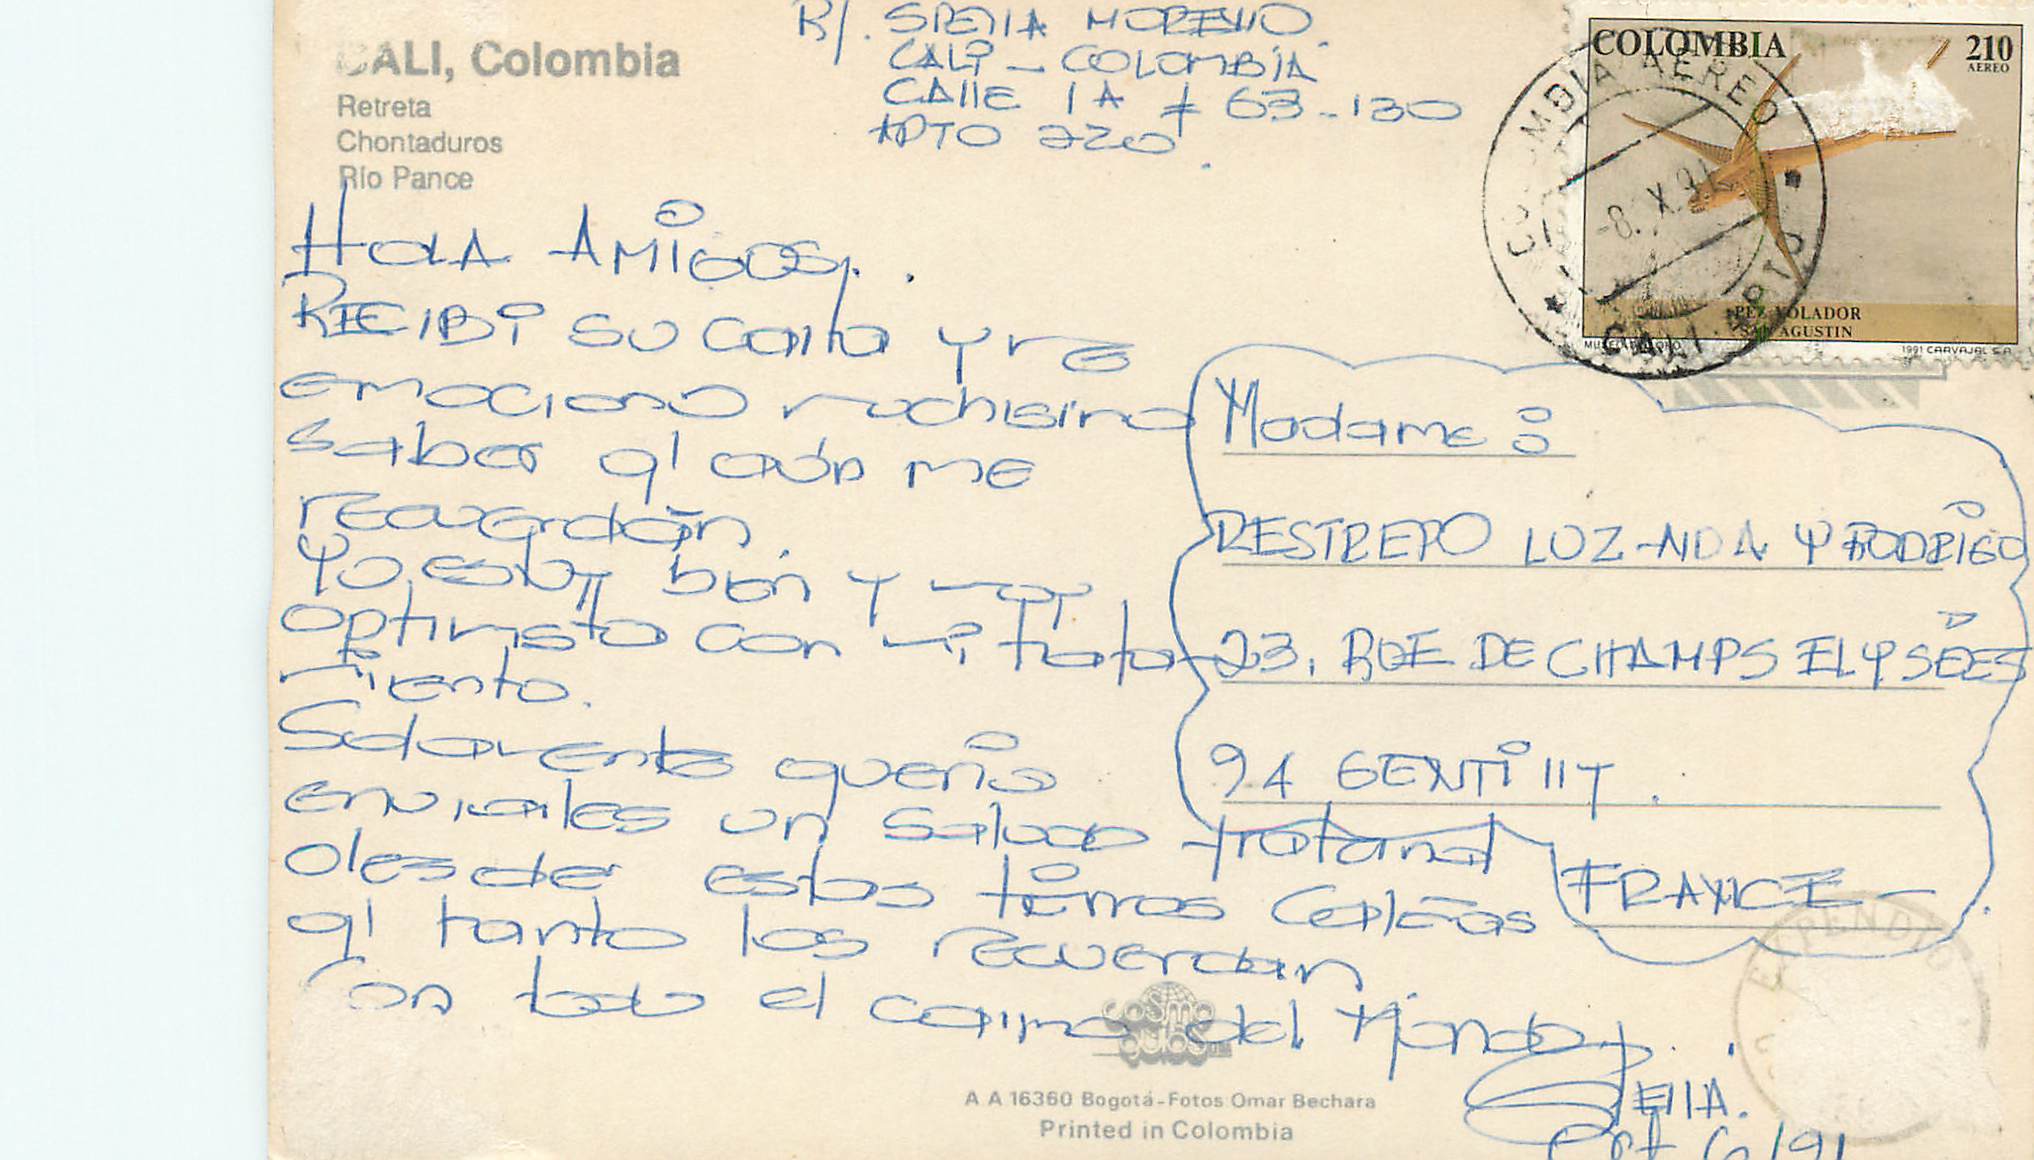 CALI, Colombia
Retreta
Chontaduros
Río Pance
R/. STELLA MORENO.
CALI - COLOMBIA
CALLE 1A # 63-130
APTO 220.
COLOMBIA 210
AEREO
COLOMBIA AEREO
-8. X. 91
CALI
PEZ VOLADOR
SAN AGUSTIN
MUSEO DEL ORO
1991 CARVAJAL S.A.
HOLA AMIGOS,.
RECIBI SU carta y me
emociono muchisimo
saber q' aún me
recuerdan.
Yo estoy bien y muy
optimista con mi trata-
miento.
Solamente queria
enviarles un saludo fraternal
desde estas tierras Caleñas
q' tanto los recuerdan
Con todo el cariño del Mundo,
STELLA.
Oct 6/91
Madame:
RESTREPO LUZ-AIDA Y RODRIGO
23, RUE DE CHAMPS ELYSÉES
94 GENTILLY.
FRANCE-
EXPENDIO
cosmo guías
A A 16360 Bogotá-Fotos Omar Bechara
Printed in Colombia